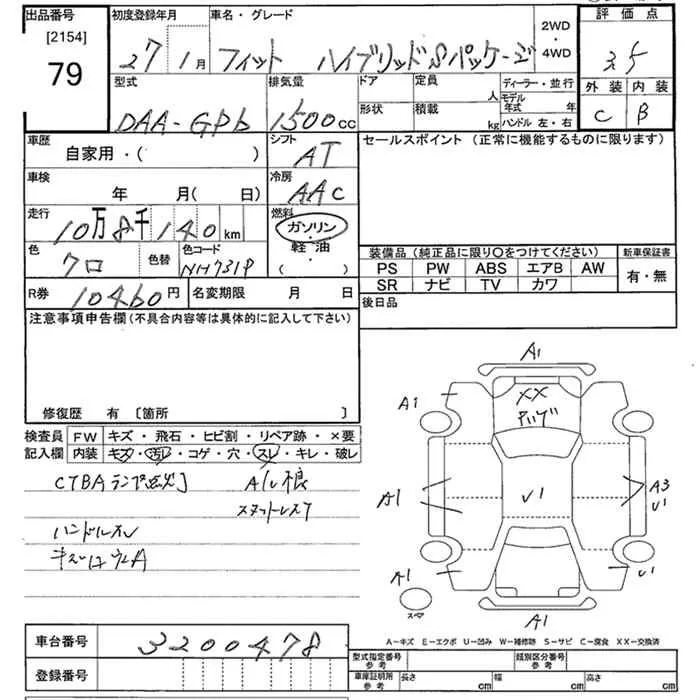 出品番号 初度登録年月 車名・グレード 評価点
[2154] 27 1月 フィット ハイブリッドSパッケージ 2WD・4WD 3.5
79
型式 排気量 ドア 定員 人 ディーラー・並行 外装 内装
DAA-GP6 1500cc 形状 積載 kg モデル年式 年 ハンドル 左・右 C B
車歴 シフト セールスポイント (正常に機能するものに限ります)
自家用・( ) AT
車検 冷房
年 月(日) AAC
走行 燃料
10万8千140km ガソリン
色 色替 色コード 軽・油 装備品(純正品に限り○をつけてください) 新車保証書
クロ NH731P ・( ) PS PW ABS エアB AW 有・無
SR ナビ TV カワ
R券 10460円 名変期限 月 日 後日品
注意事項申告欄(不具合内容等は具体的に記入して下さい)
修復歴 有 [箇所 ]
検査員記入欄 FW キズ・飛石・ヒビ割・リペア跡・×要
内装 キズ・汚レ・コゲ・穴・スレ・キレ・破レ
CTBAランプ点灯
スタットレス
ハンドルスレ
A1
A1 XX
A1 U1 A3
U1
A1 U1
スペア A1
A-キズ E-エクボ U-凹み W-補修跡 S-サビ C-腐食 XX-交換済
車台番号 3200478
登録番号
型式指定番号 参考 類別区分番号 参考
車庫証明所 参考 長さ cm 幅 cm 高さ cm